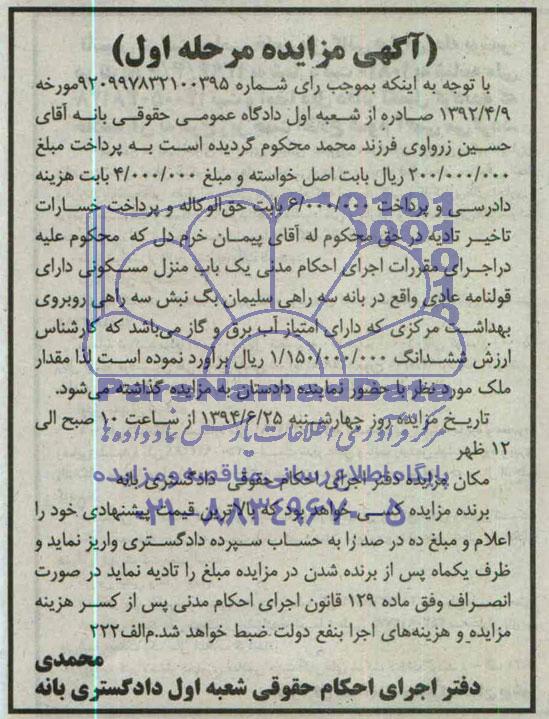 (آگهی مزایده مرحله اول)
با توجه به اینکه بموجب رای شماره ۹۲۰۹۹۷۸۳۲۱۰۰۳۹۵مورخه
۱۳۹۲/۴/۹ صادره از شعبه اول دادگاه عمومی حقوقی بانه آقای
حسین زرواوی فرزند محمد محکوم گردیده است به پرداخت مبلغ
۲۰۰/۰۰۰/۰۰۰ ریال بابت اصل خواسته و مبلغ ۴/۰۰۰/۰۰۰ بابت هزینه
دادرسی و پرداخت ۶/۰۰۰/۰۰۰ بابت حق‌الوکاله و پرداخت خسارات
تاخیر تادیه در حق محکوم له آقای پیمان خرم دل که محکوم علیه
دراجرای مقررات اجرای احکام مدنی یک باب منزل مسکونی دارای
قولنامه عادی واقع در بانه سه راهی سلیمان بگ نبش سه راهی روبروی
بهداشت مرکزی که دارای امتیاز آب برق و گاز می‌باشد که کارشناس
ارزش ششدانگ ۱/۱۵۰/۰۰۰/۰۰۰ ریال برآورد نموده است لذا مقدار
ملک مورد نظر با حضور نماینده دادستان به مزایده گذاشته می‌شود.
تاریخ مزایده روز چهارشنبه ۱۳۹۴/۶/۲۵ از ساعت ۱۰ صبح الی
۱۲ ظهر
مکان مزایده دفتر اجرای احکام حقوقی دادگستری بانه
برنده مزایده کسی خواهد بود که بالاترین قیمت پیشنهادی خود را
اعلام و مبلغ ده در صد را به حساب سپرده دادگستری واریز نماید و
ظرف یکماه پس از برنده شدن در مزایده مبلغ را تادیه نماید در صورت
انصراف وفق ماده ۱۲۹ قانون اجرای احکام مدنی پس از کسر هزینه
مزایده و هزینه‌های اجرا بنفع دولت ضبط خواهد شد.م‌الف۲۲۲
محمدی
دفتر اجرای احکام حقوقی شعبه اول دادگستری بانه
ParsNamadData
مرکز فرآوری اطلاعات پارس نماد داده‌ها
پایگاه اطلاع رسانی مناقصه و مزایده
۰۲۱-۸۸۳۴۹۶۷۰-۵